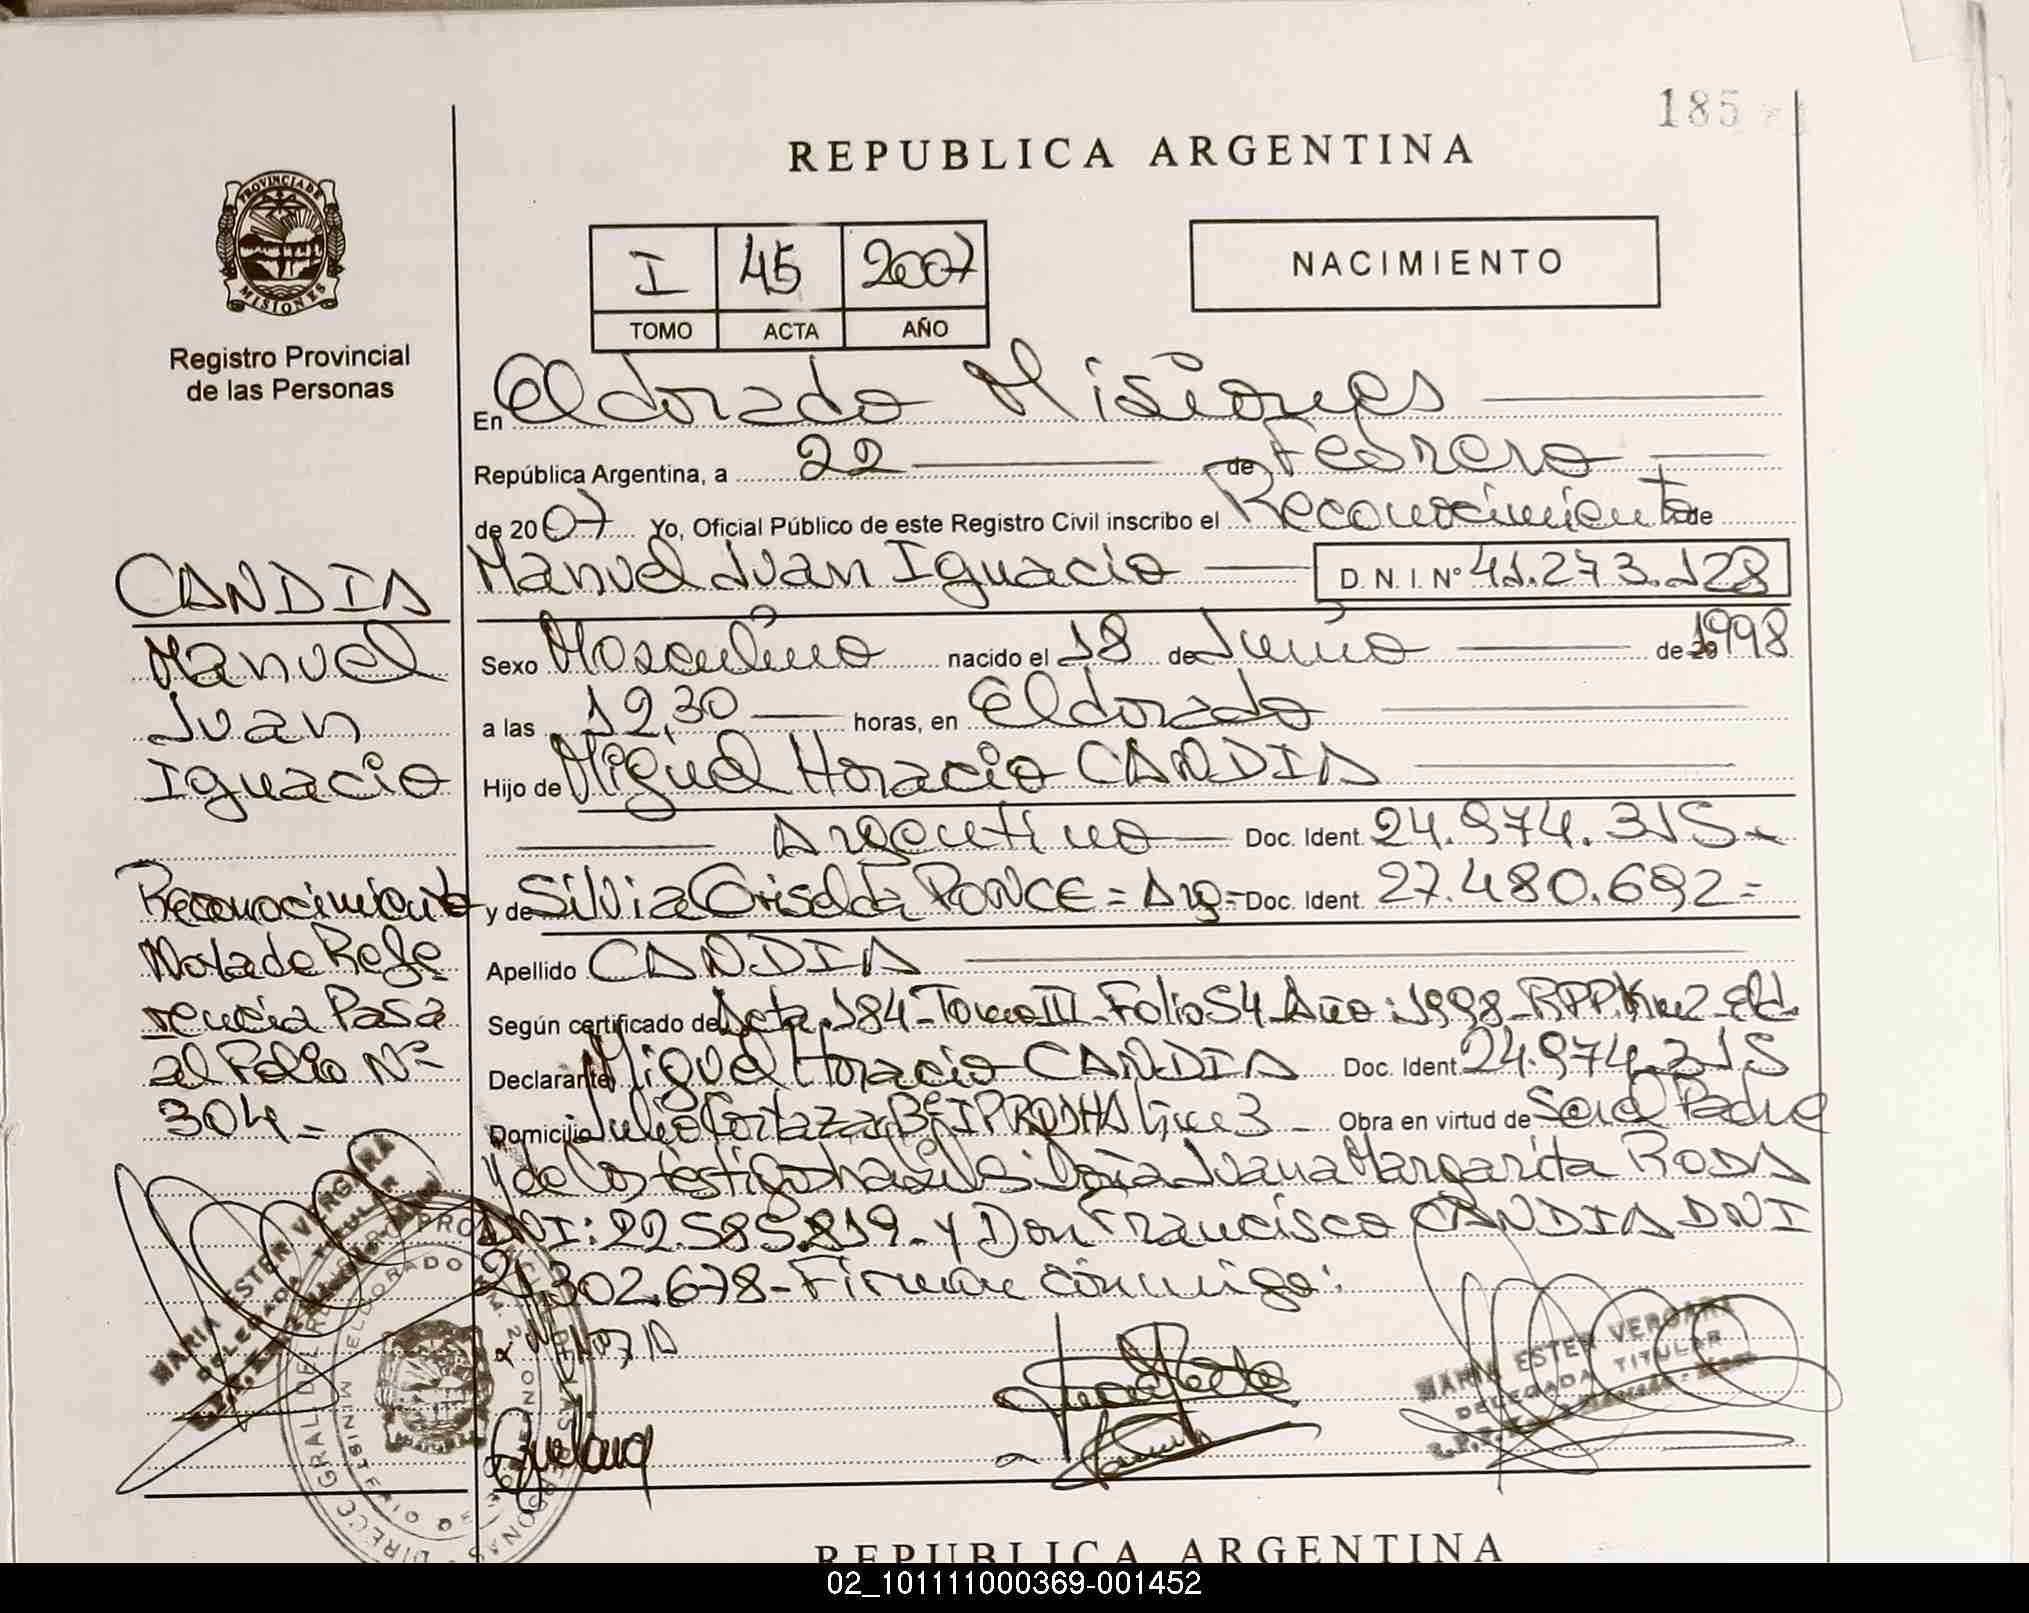 185
REPUBLICA ARGENTINA
PROVINCIA DE
MISIONES
Registro Provincial
de las Personas
I 45 2007
TOMO ACTA AÑO
NACIMIENTO
En Eldorado Misiones
República Argentina, a 22 de Febrero
de 2007 Yo, Oficial Público de este Registro Civil inscribo el Reconocimiento de
Manuel Juan Ignacio D. N. I. Nº 41.273.128
Sexo Masculino nacido el 18 de Junio de 20 1998
a las 12,30 horas, en Eldorado
Hijo de Miguel Horacio CANDIA
Argentino Doc. Ident. 24.974.315.-
y de Silvia Griselda PONCE = Arg- Doc. Ident. 27.480.692=
Apellido CANDIA
Según certificado de Acta 184-Tomo III-Folio 54-Año:1998-RPP. Km2-Eld.
Declarante Miguel Horacio CANDIA Doc. Ident 24.974.315
Domicilio Julio Cortazar Bº IPRODHA Km 3 - Obra en virtud de Ser el Padre
y de los testigos habiles: Doña Juana Margarita RODA
DNI: 22.585.819-y Don Francisco CANDIA DNI
21.302.678-Firman conmigo:
CANDIA
Manuel
Juan
Ignacio
Reconocimiento
Nota de Refe
rencia Pasa
al Folio Nº
304=
MARIA ESTER VERGARA
DELEGADA TITULAR
MARIA ESTER VERGARA
DELEGADA TITULAR
REPUBLICA ARGENTINA
02_101111000369-001452